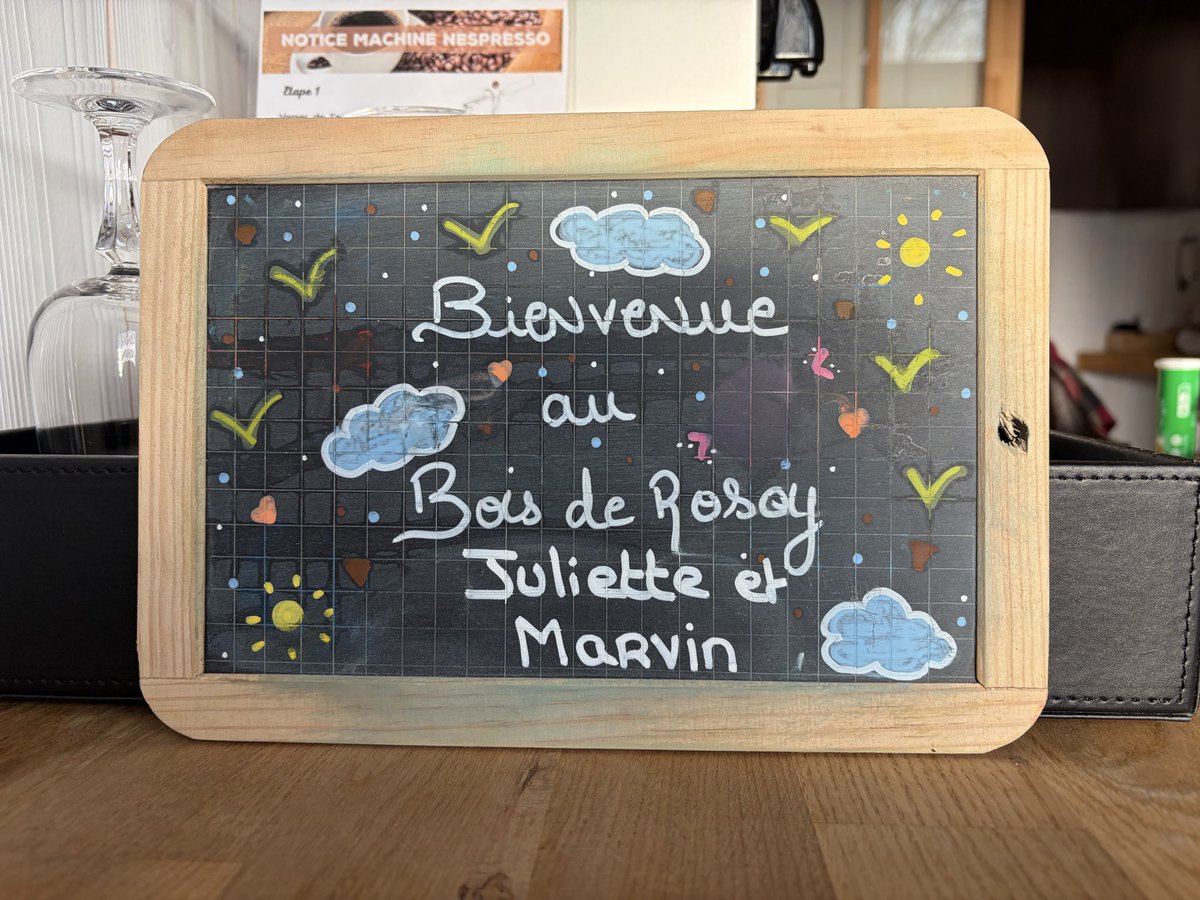 NOTICE MACHINE NESPRESSO
Étape 1
Bienvenue
au
Bois de Rosoy
Juliette et
Marvin